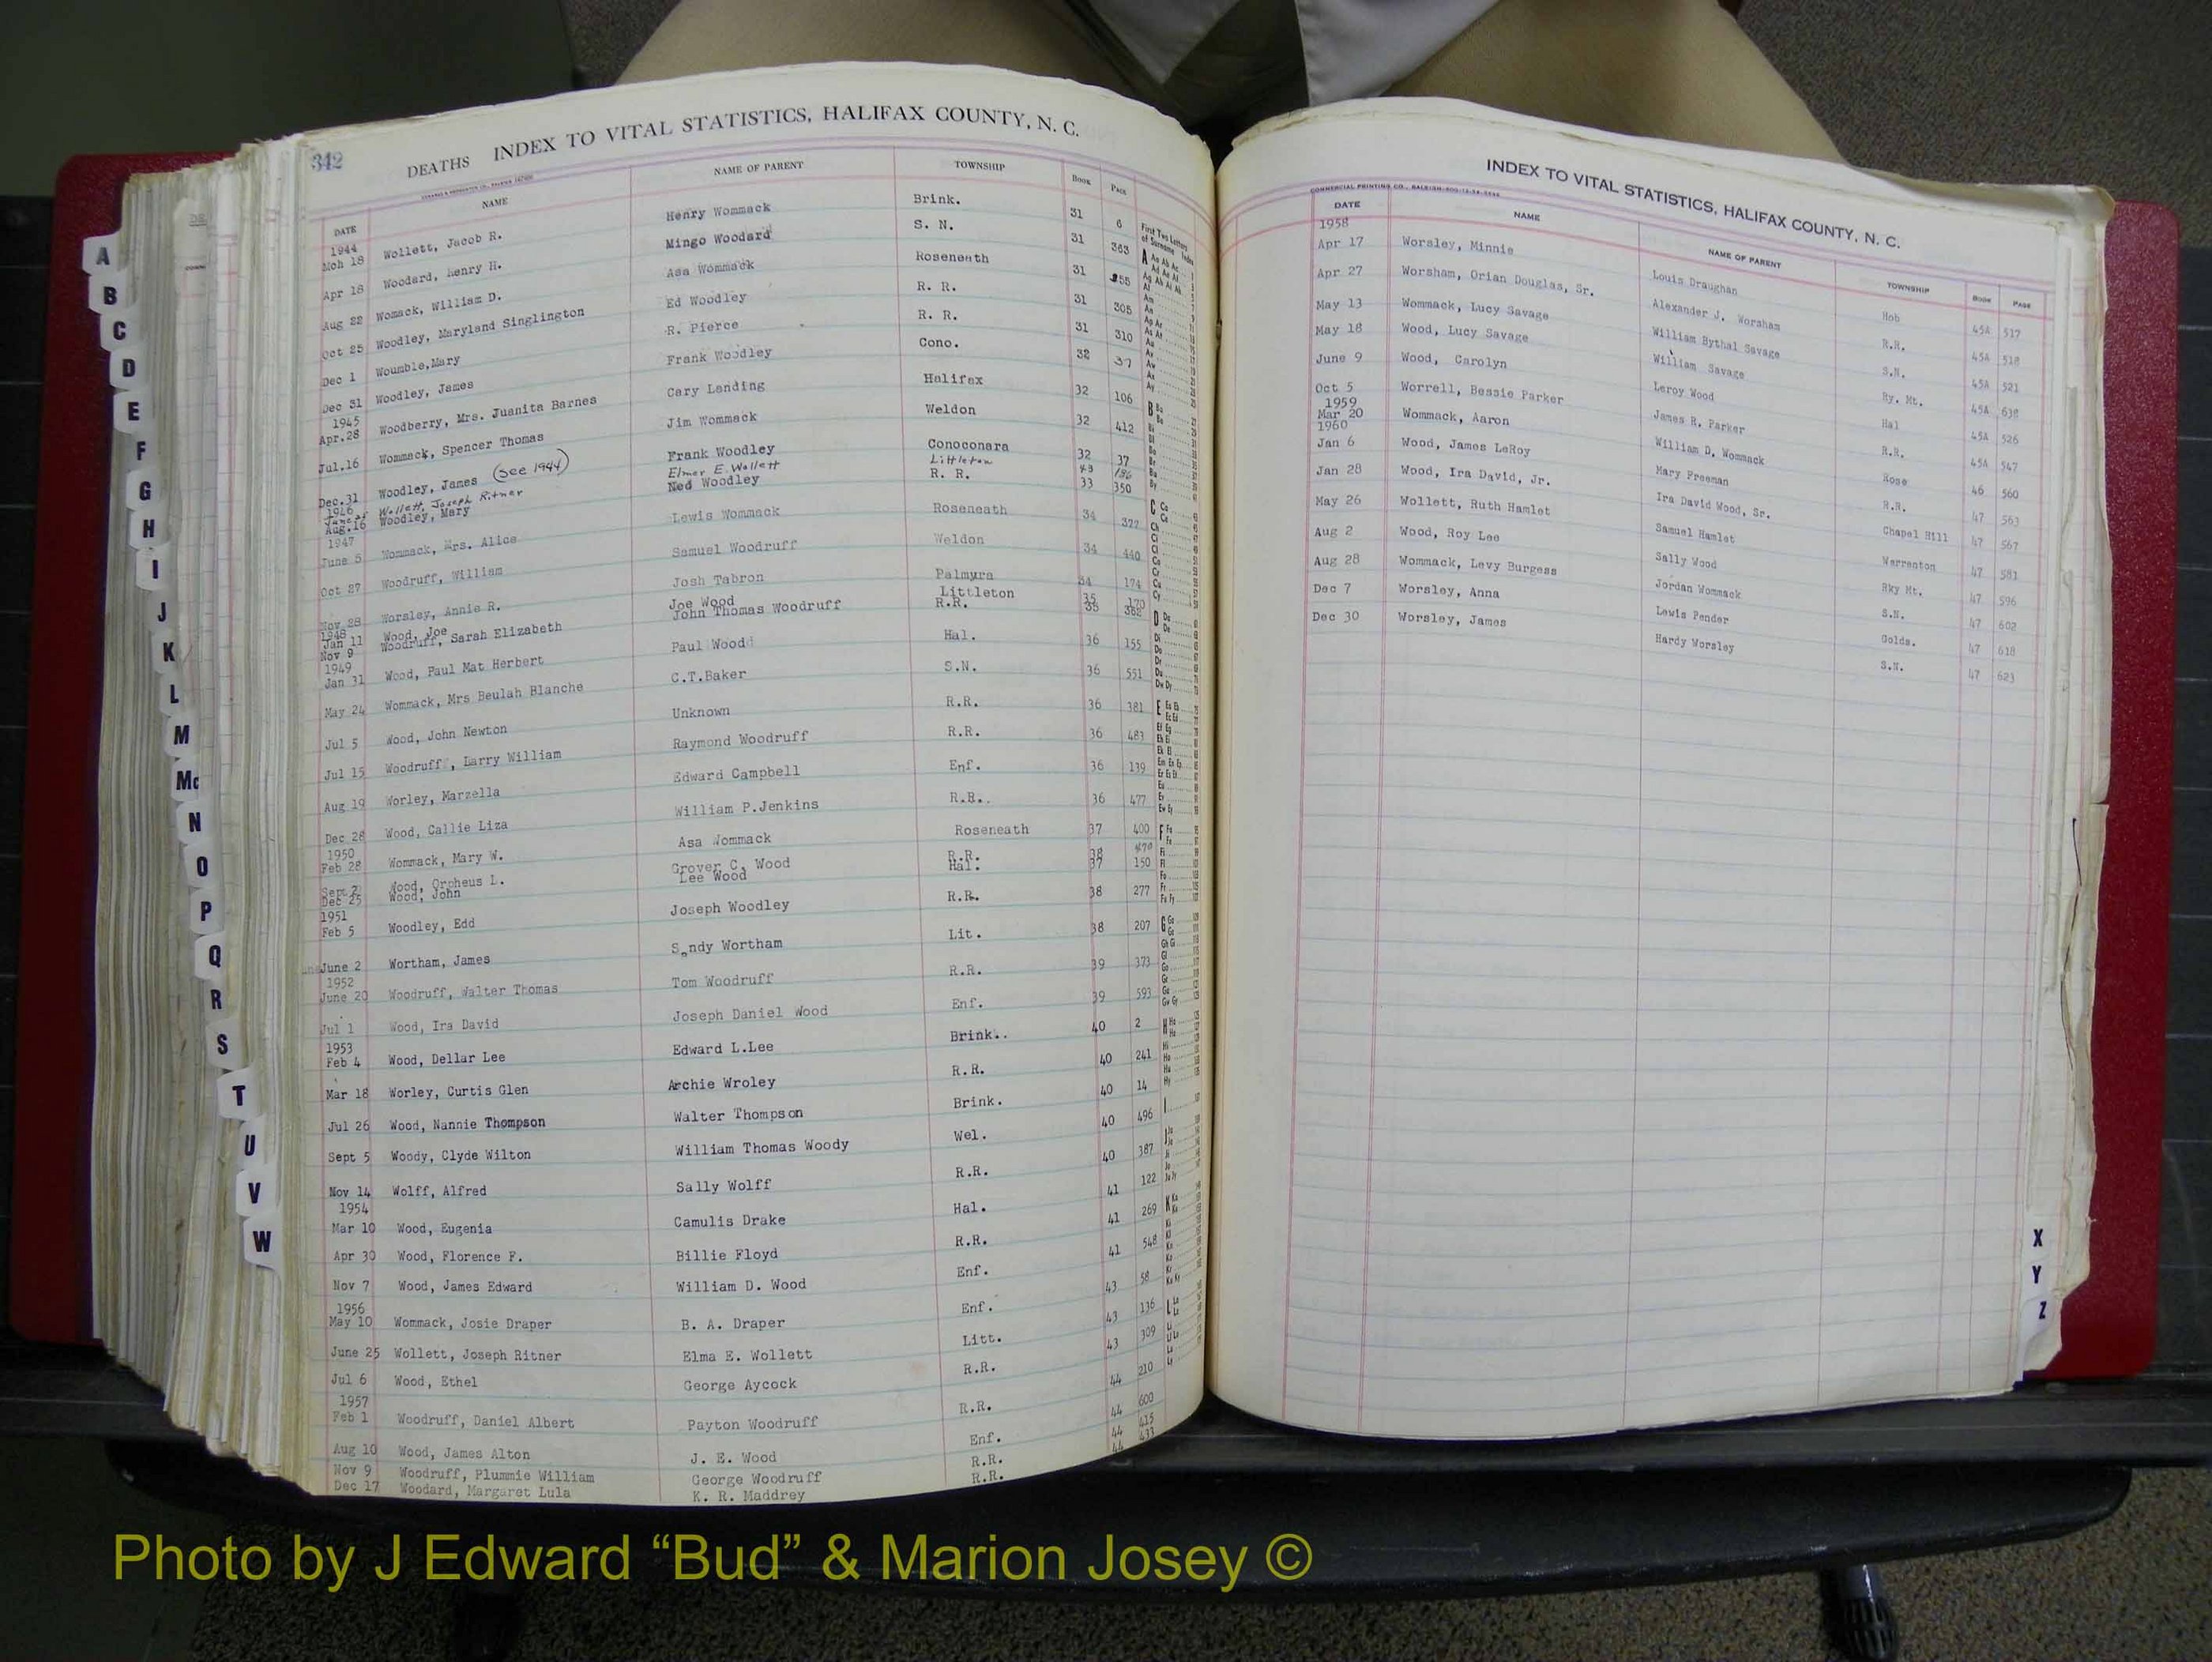 342
DEATHS INDEX TO VITAL STATISTICS, HALIFAX COUNTY, N. C.
DATE NAME NAME OF PARENT TOWNSHIP BOOK PAGE
1944
Mch 18 Wollett, Jacob R. Henry Wommack Brink. 31 6
Apr 18 Woodard, Henry H. Mingo Woodard S. N. 31 363
Aug 22 Womack, William D. Asa Wommack Roseneath 31 255
Oct 25 Woodley, Maryland Singlington Ed Woodley R. R. 31 305
Dec 1 Woumble, Mary R. Pierce R. R. 31 310
Dec 31 Woodley, James Frank Woodley Cono. 32 37
1945
Apr. 28 Woodberry, Mrs. Juanita Barnes Cary Landing Halifax 32 106
Jul. 16 Wommack, Spencer Thomas Jim Wommack Weldon 32 412
Dec. 31 Woodley, James (See 1944) Frank Woodley Conoconara 32 37
1946
Wollett, Joseph Ritner Elmer E. Wollett Littleton 43 136
Aug. 16 Woodley, Mary Ned Woodley R. R. 33 350
1947
June 5 Wommack, Mrs. Alice Lewis Wommack Roseneath 34 322
Oct 27 Woodruff, William Samuel Woodruff Weldon 34 440
Nov 28 Worsley, Annie R. Josh Tabron Palmyra 34 174
1948
Jan 11 Wood, Joe Joe Wood Littleton 35 170
Nov 9 Woodruff, Sarah Elizabeth John Thomas Woodruff R.R. 35 362
1949
Jan 31 Wood, Paul Mat Herbert Paul Wood Hal. 36 155
May 24 Wommack, Mrs Beulah Blanche C.T.Baker S.N. 36 551
Jul 5 Wood, John Newton Unknown R.R. 36 381
Jul 15 Woodruff, Larry William Raymond Woodruff R.R. 36 483
Aug 19 Worley, Marzella Edward Campbell Enf. 36 139
Dec 28 Wood, Callie Liza William P.Jenkins R.R. 36 477
1950
Feb 28 Wommack, Mary W. Asa Wommack Roseneath 37 400
Sept 2 Wood, Orpheus L. Grover C. Wood R.R. 38 470
Dec 25 Wood, John Lee Wood Hal. 37 150
1951
Feb 5 Woodley, Edd Joseph Woodley R.R. 38 277
June 2 Wortham, James Sandy Wortham Lit. 38 207
1952
June 20 Woodruff, Walter Thomas Tom Woodruff R.R. 39 373
Jul 1 Wood, Ira David Joseph Daniel Wood Enf. 39 593
1953
Feb 4 Wood, Dellar Lee Edward L.Lee Brink.. 40 2
Mar 18 Worley, Curtis Glen Archie Wroley R.R. 40 241
Jul 26 Wood, Nannie Thompson Walter Thompson Brink. 40 14
Sept 5 Woody, Clyde Wilton William Thomas Woody Wel. 40 496
Nov 14 Wolff, Alfred Sally Wolff R.R. 40 387
1954
Mar 10 Wood, Eugenia Camulis Drake Hal. 41 122
Apr 30 Wood, Florence F. Billie Floyd R.R. 41 269
Nov 7 Wood, James Edward William D. Wood Enf. 41 548
1956
May 10 Wommack, Josie Draper B. A. Draper Enf. 43 58
June 25 Wollett, Joseph Ritner Elma E. Wollett Litt. 43 136
Jul 6 Wood, Ethel George Aycock R.R. 43 309
1957
Feb 1 Woodruff, Daniel Albert Payton Woodruff R.R. 44 210
Aug 10 Wood, James Alton J. E. Wood Enf. 44 600
Nov 9 Woodruff, Plummie William George Woodruff R.R. 44 415
Dec 17 Woodard, Margaret Lula K. R. Maddrey R.R. 44 433
First Two Letters of Surname
INDEX TO VITAL STATISTICS, HALIFAX COUNTY, N. C.
DATE NAME NAME OF PARENT TOWNSHIP BOOK PAGE
1958
Apr 17 Worsley, Minnie Louis Draughan Hob 45A 517
Apr 27 Worsham, Orian Douglas, Sr. Alexander J. Worsham R.R. 45A 518
May 13 Wommack, Lucy Savage William Bythal Savage S.N. 45A 521
May 18 Wood, Lucy Savage William Savage Ry. Mt. 45A 638
June 9 Wood, Carolyn Leroy Wood Hal 45A 526
Oct 5 Worrell, Bessie Parker James R. Parker R.R. 45A 547
1959
Mar 20 Wommack, Aaron William D. Wommack Rose 46 560
1960
Jan 6 Wood, James LeRoy Mary Freeman R.R. 47 563
Jan 28 Wood, Ira David, Jr. Ira David Wood, Sr. Chapel Hill 47 567
May 26 Wollett, Ruth Hamlet Samuel Hamlet Warrenton 47 581
Aug 2 Wood, Roy Lee Sally Wood Rky Mt. 47 596
Aug 28 Wommack, Levy Burgess Jordan Wommack S.N. 47 602
Dec 7 Worsley, Anna Lewis Pender Golds. 47 618
Dec 30 Worsley, James Hardy Worsley S.N. 47 623
A
B
C
D
E
F
G
H
I
J
K
L
M
Mc
N
O
P
Q
R
S
T
U
V
W
X
Y
Z
Photo by J Edward “Bud” & Marion Josey ©